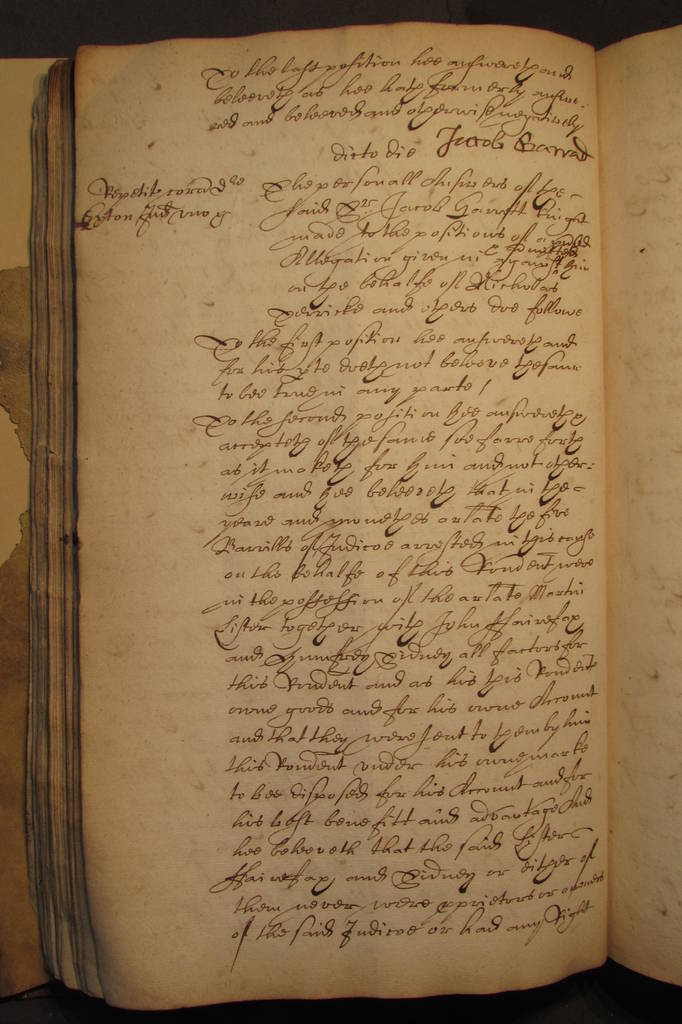 To the last position hee answereth and
beleeveth as hee hath formerly answe-
red and beleeved and otherwise negatively
dicto die Jacob Garrad
Repetit coram d
Exton Jud
The personall Answers of the
said Sr Jacob Garrett Knight
made to the positions of a
Allegation given in Admitted
against him
on the behalfe of Nicholas
Derricke and others doe followe
To the first position hee answereth and
for his pte doeth not beleeve the same
to bee true in any parte /
To the second position hee answereth
accepteth of the same soe farre forth
as it maketh for him and not other-
wise and hee beleeveth that in the
yeare and monethes arlate the five
Barrills of Indicoe arrested in this cause
on the behalfe of this Rondent were
in the possession of the arlate Martin
Lister together with John ffairefax
and Humfrey Sidney all factors for
this Rondent and as his this Rondents
owne goods and for his owne Account
and that they were sent to them by him
this Rondent under his owne marke
to bee disposed for his Account and for
his best benefitt and advantage And
hee beleeveth that the said Lister
ffairefax and Sidney or either of
them never were pprietors or owners
of the said Indicoe or had any Right